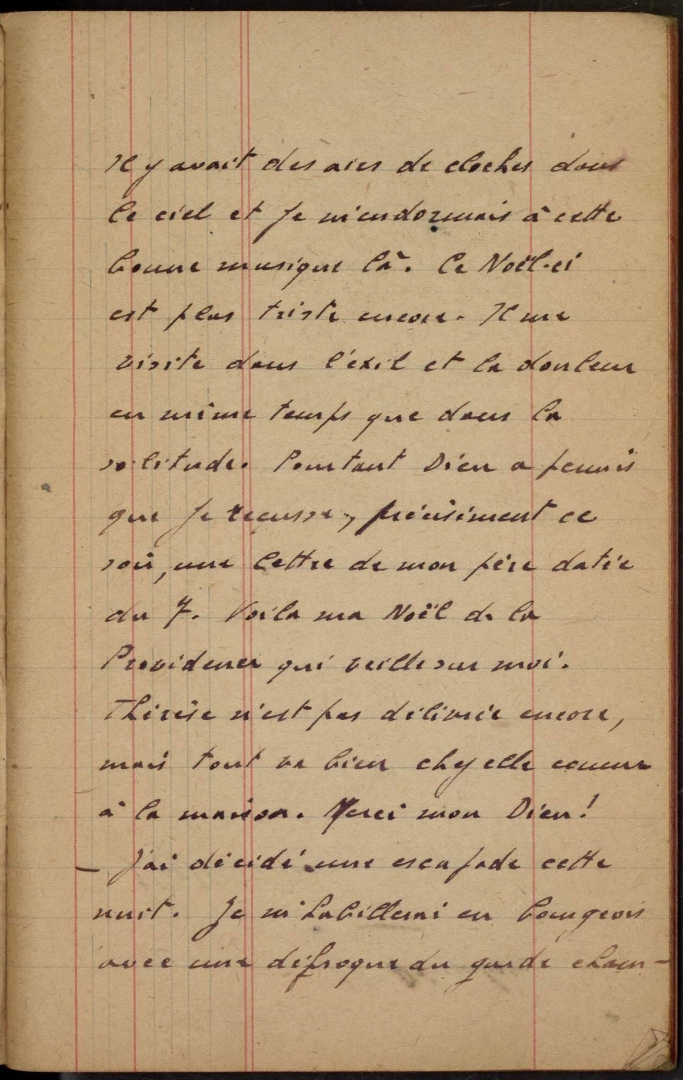 Il y avait des airs de cloches dans
le ciel et je m'endormais à cette
bonne musique là. Ce Noël-ci
est plus triste encore. Il me
visite dans l'exil et la douleur
en même temps que dans la
solitude. Pourtant Dieu a permis
que je reçusse, précisément ce
soir, une lettre de mon père datée
du 7. Voilà ma Noël de la
Providence qui veille sur moi.
Thérèse n'est pas délivrée encore,
mais tout va bien chez elle comme
à la maison. Merci mon Dieu!
— J'ai décidé une escapade cette
nuit. Je m'habillerai en bourgeois
avec une défroque du garde cham-